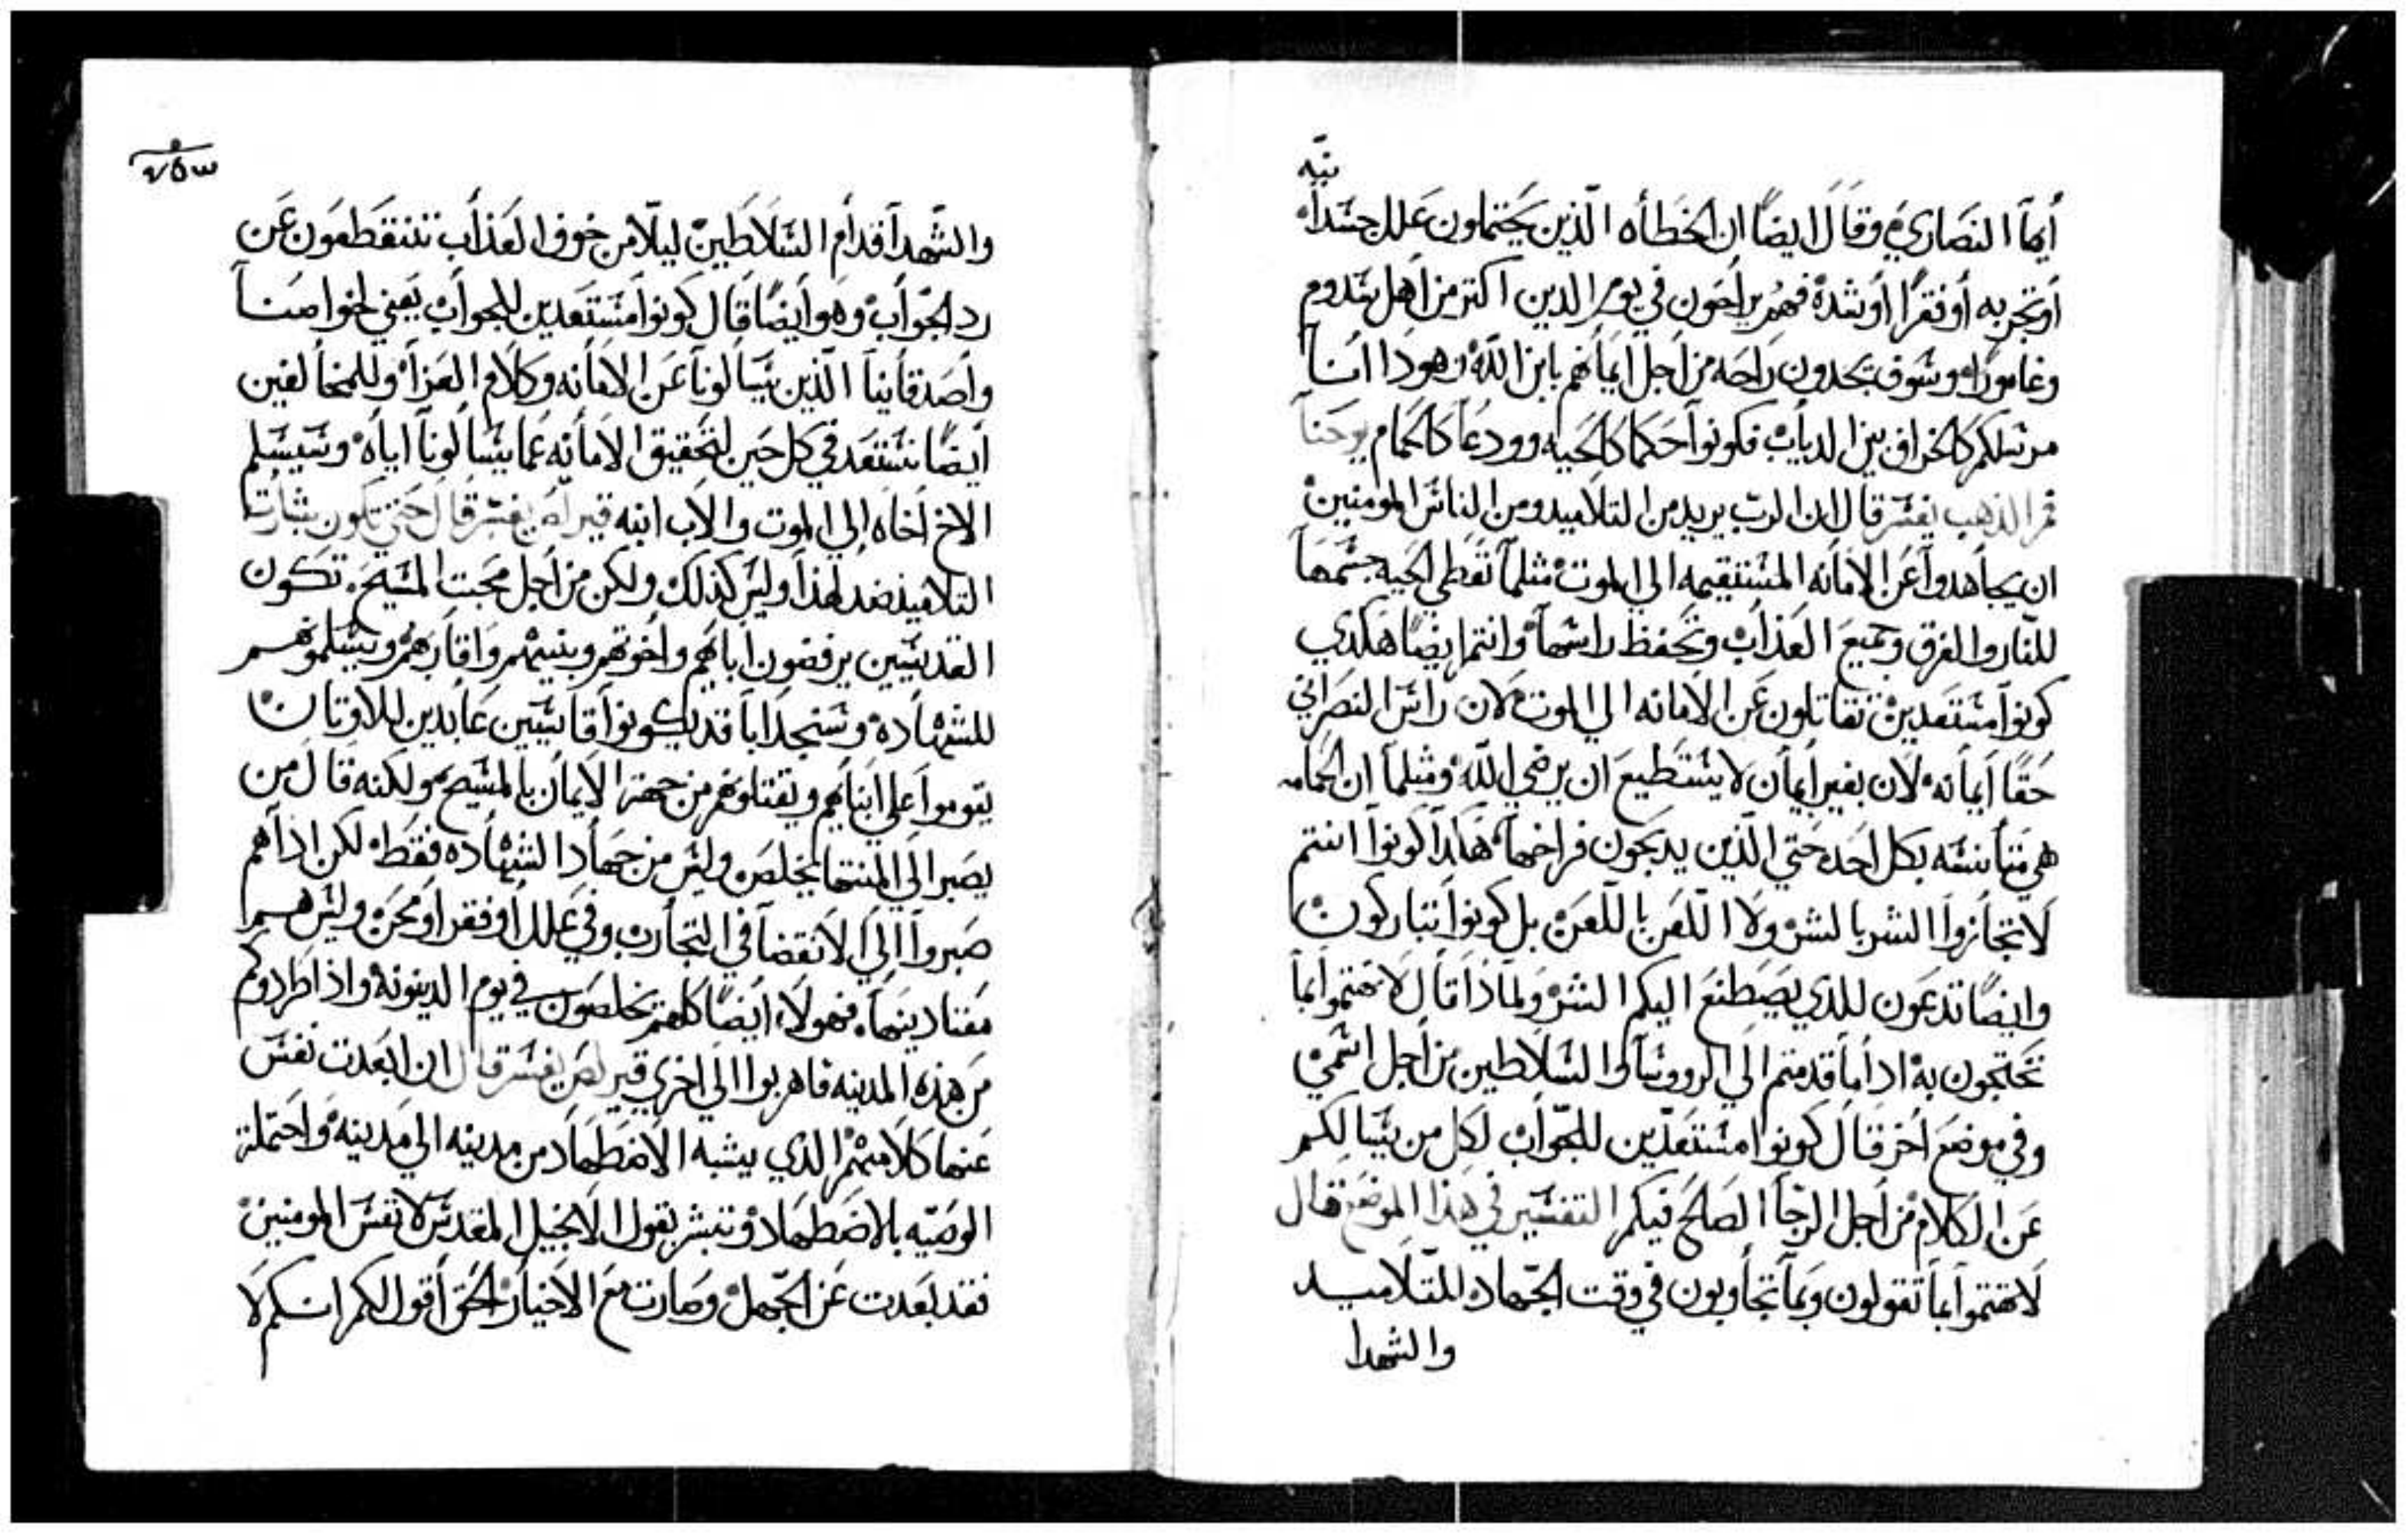 أيها النصاري وقال ايضًا ان الخطأه الذين يحتملون علل جسدانيّه
أو تجربه أو فقرًا أو شدة فهم يراحون في يوم الدين اكتر من أهل سدوم
وغاموراه وسوف يجدون راحه من أجل ايمانهم بابن الله وهودا انا
مرسلكم كالخراف بين الدياب فكونوا حكما كالحيه وودعا كالحمام يوحنا
فم الذهب يفسر قال ان الرب يريد من التلاميد ومن الناس المومنين
ان يجاهدوا عن الامانه المستقيمه الي الموت مثلما تعطي الحيه جسمها
للنار والغرق وجميع العذاب وتحفظ راسها وانتم ايضًا هكدي
كونوا مستعدين تقاتلون عن الامانه الي الموت لان راس النصراني
حقًا أيمانه لان بغير أيمان لا يستطيع ان يرضي الله ومثلما ان الحمامه
هي متانسه بكل احد حتي الذين يدبحون فراخها هكدا كونوا انتم
لا تجازوا الشر بالشر ولا اللعن باللعن بل كونوا تباركون
وايضًا تدعون للذي يصطنع اليكم الشر ولماذا قال لا تهتموا بما
تحتجون به اداما قدمتم الي الروسا والسلاطين من أجل اسمي
وفي موضع اخر قال كونوا مستعدّين للجواب لكل من يسالكم
عن الكلام من أجل الرجا الصالح فيكم التفسير في هذا الموضع قال
لا تهتموا بما تقولون وبما تجاوبون في وقت الجهاد للتلاميد
والشهدا
والشهدا قدام السلاطين ليلا من خوف العذاب تنقطعون عن
رد الجواب وهو أيضًا قال كونوا مستعدين للجواب يعني لخواصنا
واصدقأينا الذين يسالونا عن الامانه وكلام العزاء وللمخالفين
أيضًا نستعد في كل حين لتحقيق الامانه عما يسالونا اياه وسيسلم
الاخ أخاه الي الموت والاب ابنه قيرلص يفسر قال حتي تكون بشارت
التلاميذ ضد لهذا وليس كذلك ولكن من أجل محبت المسيح تكون
القديسين يرفضون ابايهم واخوتهم وبنيهم واقاربهم ويسلموهم
للشهاده وستجد ابا قد يكونوا قاسيين عابدين للاوتان
يقوموا علي ابنايهم ويقتلوهم من جهة الايمان بالمسيح ولكنه قال من
يصبر الي المنتها يخلص وليس من جهاد الشهاده فقط لكن اذا هم
صبروا الي الانقضا في التجارب وفي علل أو فقر او محن وليس هم
مفتادينها فهولاء ايضًا كلهم يخلصون في يوم الدينونه واذا طردوكم
من هذه المدينه فاهربوا الي اخري قيرلص يفسر قال ان ابعدت نفس
عنها كلامهم الذي يشبه الاضطهاد من مدينه الي مدينه واحتملت
الوصيّه بالاضطهاد وتبشر بقول الانجيل المقدس لانفس المومنين
فقد بعدت عن الجهل وصارت مع الاخيار الحق أقول لكم انكم لا